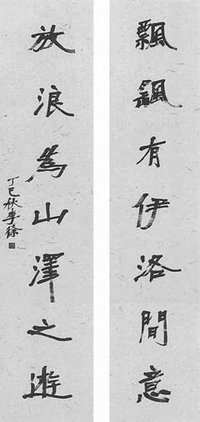 飄飄有伊洛間意
放浪為山澤之遊
丁巳秋